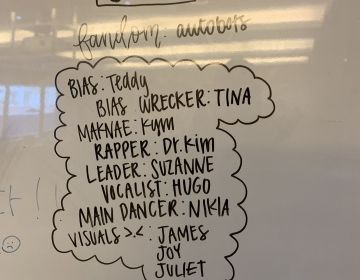 fandom: autobots
BIAS: Teddy
BIAS WRECKER: TINA
MAKNAE: Kym
RAPPER: Dr. Kim
LEADER: SUZANNE
VOCALIST: HUGO
MAIN DANCER: NIKIA
VISUALS >.< : JAMES
JOY
JULIET